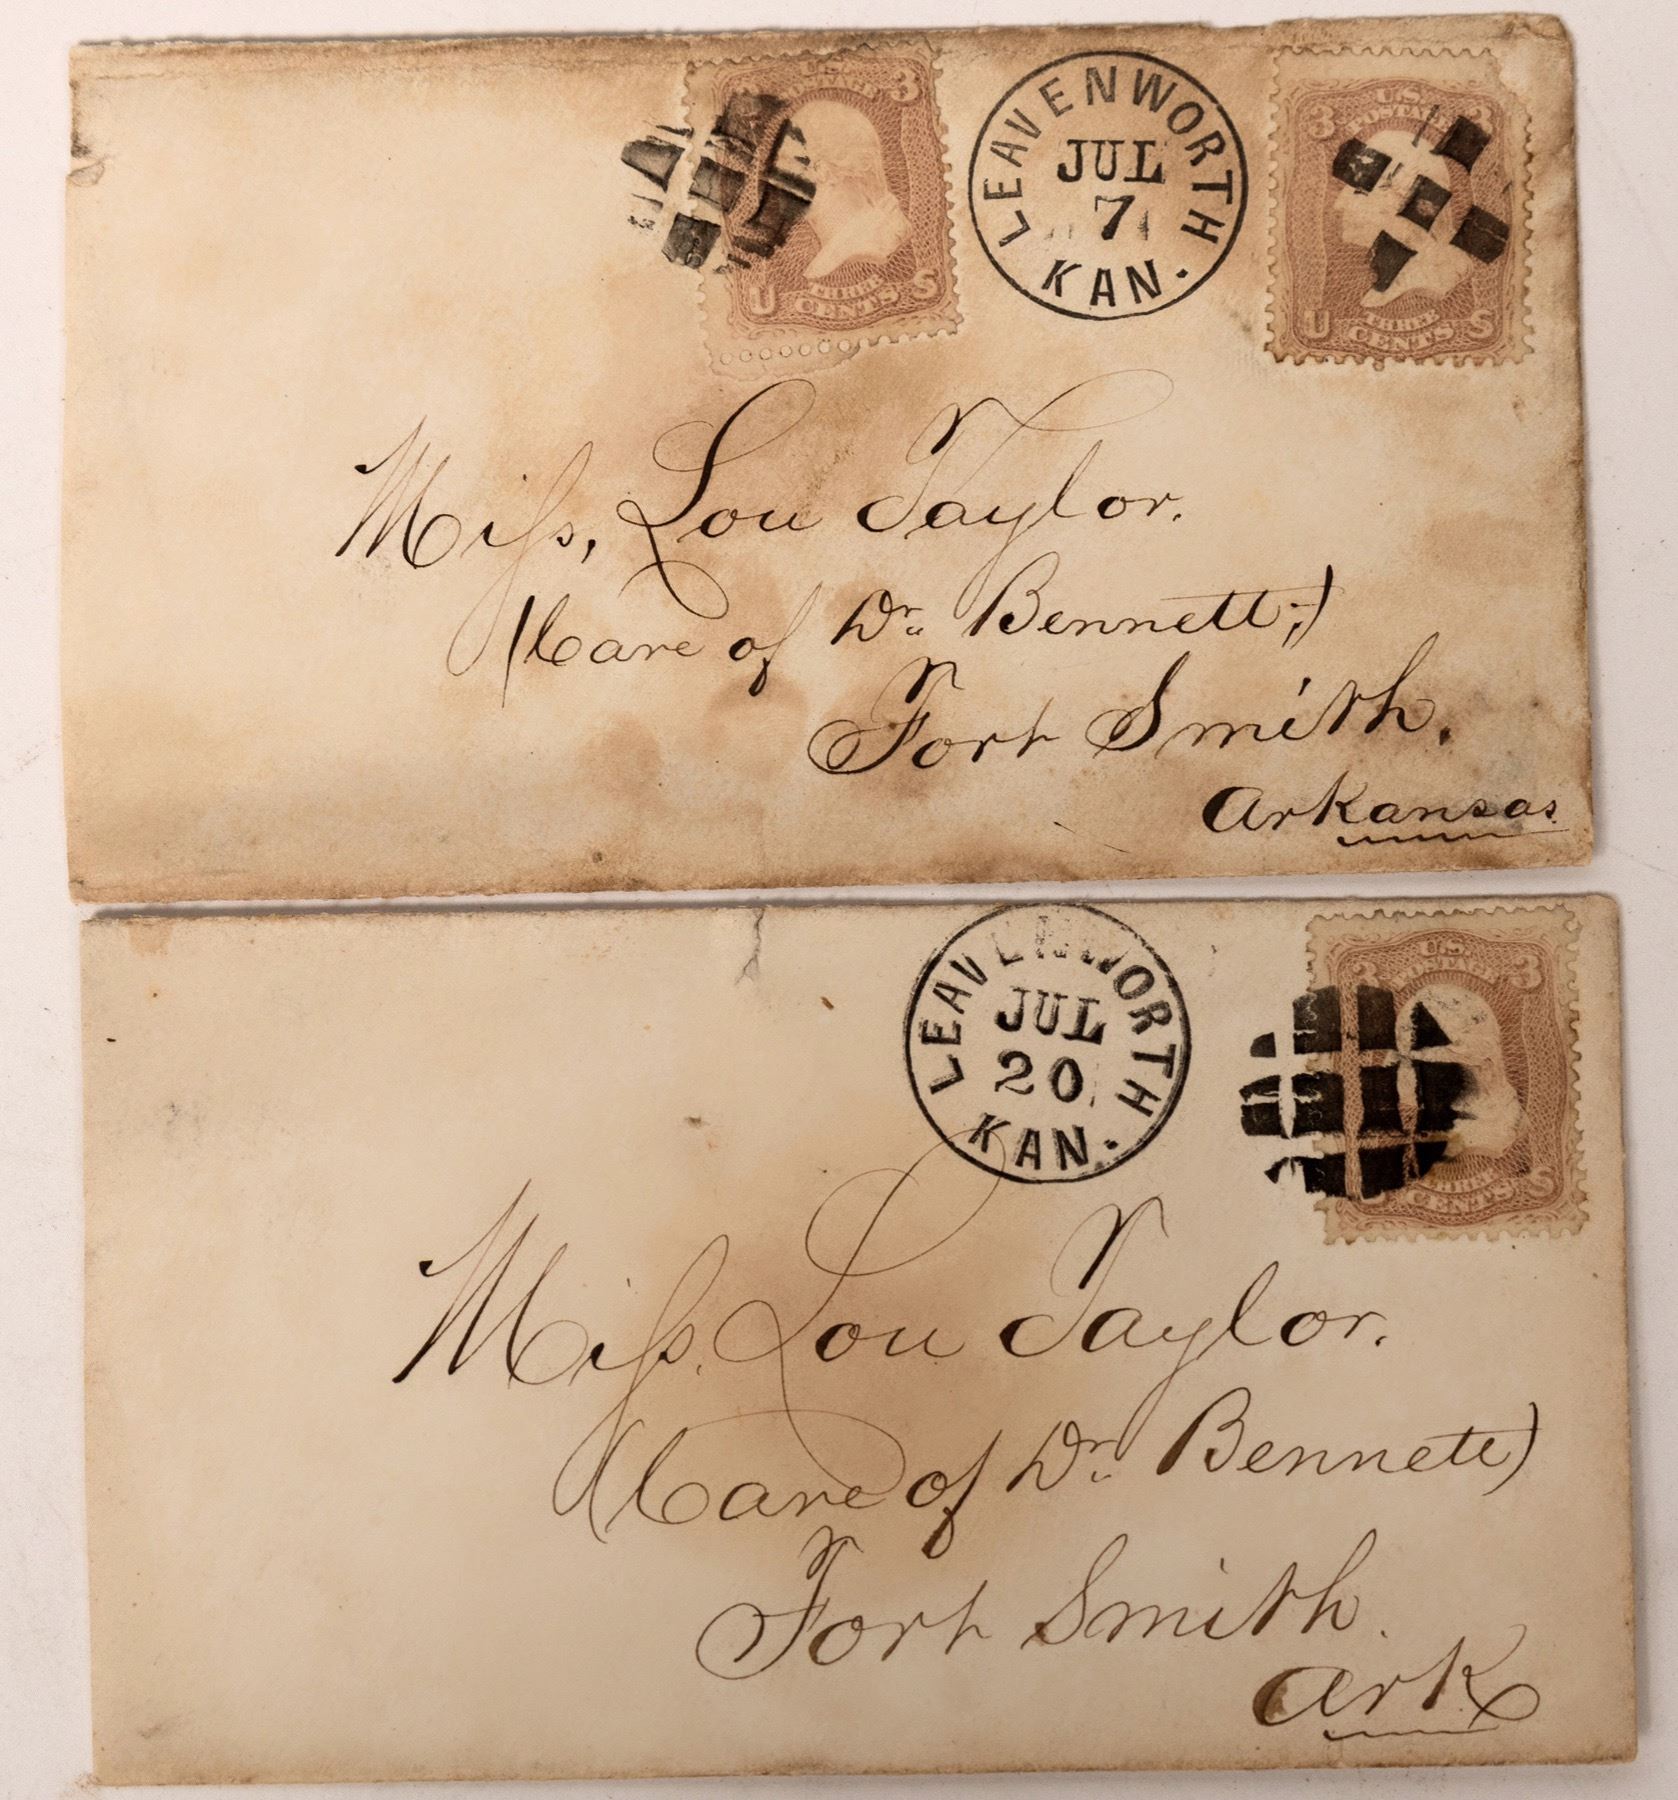 U.S. POSTAGE
3
U THREE CENTS S
LEAVENWORTH
JUL
7
KAN.
U.S. POSTAGE
3 3
U THREE CENTS S
Miss, Lou Taylor.
(Care of Dr. Bennett,)
Fort Smith,
Arkansas.
LEAVENWORTH
JUL
20
KAN.
U.S. POSTAGE
3 3
THREE CENTS S
Miss, Lou Taylor.
(Care of Dr. Bennett)
Fort Smith.
Ark